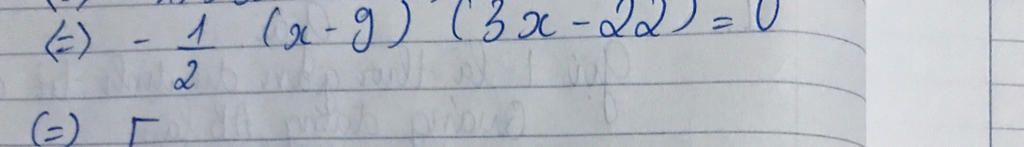 (=) - 1/2 (x - 9) (3x - 22) = 0
(=) [